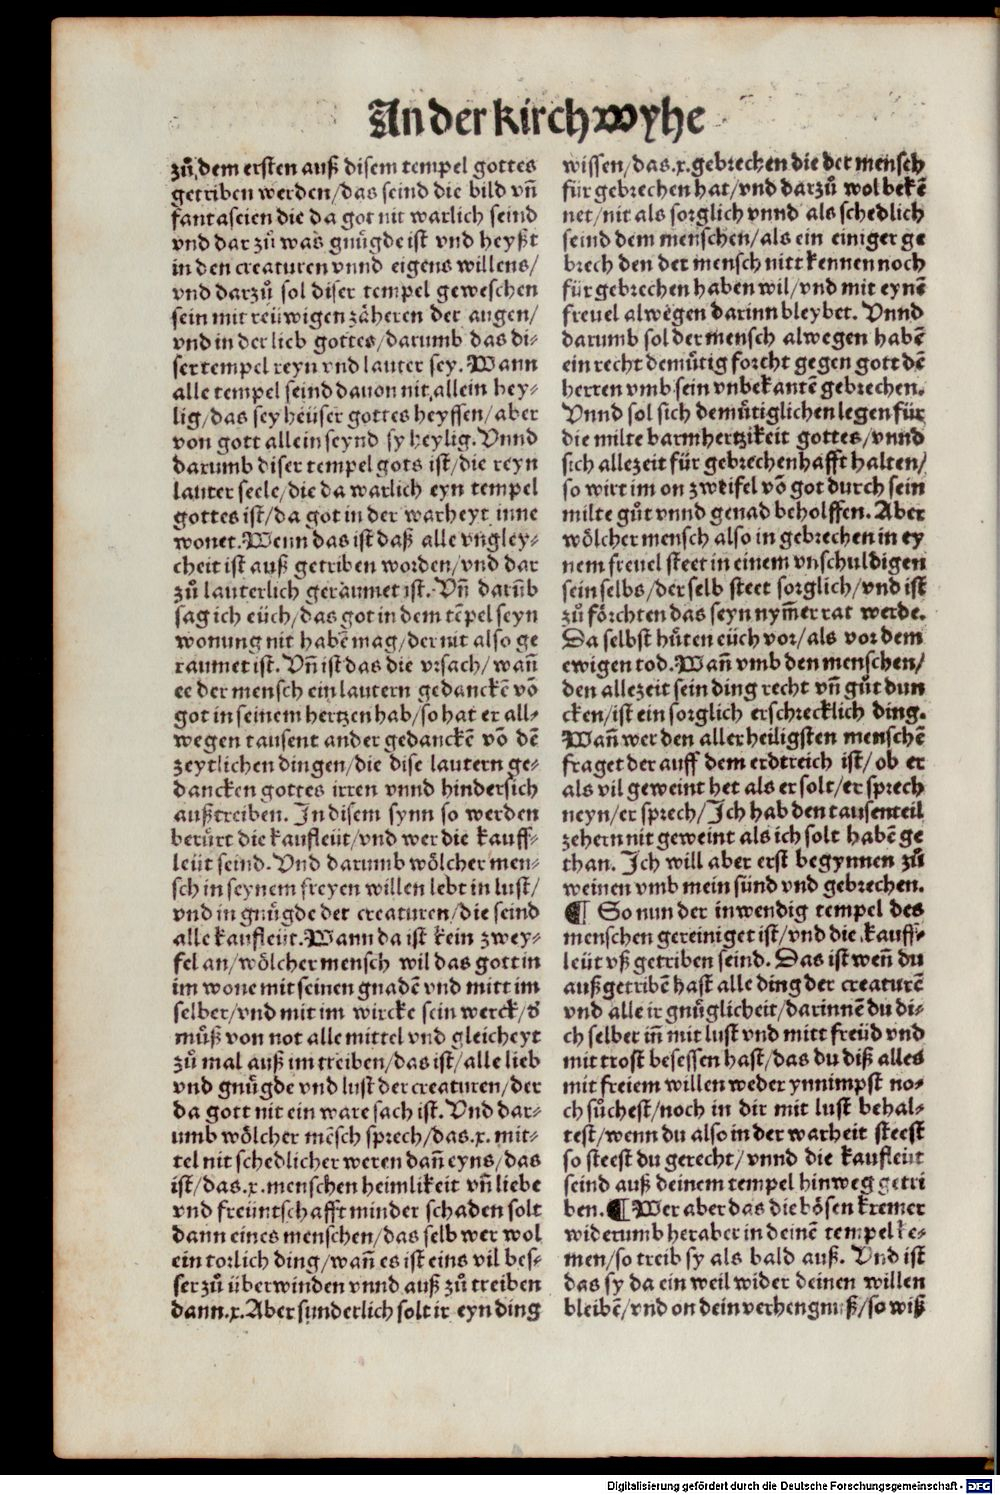 An der kirchwyhe
zuͦ dem ersten auß disem tempel gottes
getriben werden/das seind die bild vñ
fantaseien die da got nit warlich seind
vnd dar zuͦ was gnuͤgde ist vnd heyßt
in den creaturen vnnd eigens willens/
vnd darzuͦ sol diser tempel geweschen
sein mit reüwigen zaͤheren der augen/
vnd in der lieb gottes/darumb das di-
ser tempel reyn vnd lauter sey. Wann
alle tempel seind dauon nit allein hey-
lig/das sey heüser gottes heyssen/aber
von gott allein seynd sy heylig. Vnnd
darumb diser tempel gots ist/die reyn
lauter seele/die da warlich eyn tempel
gottes ist/da got in der warheyt inne
wonet. Wenn das ist daß alle vngley-
cheit ist auß getriben worden/vnd dar
zuͦ lauterlich geraumet ist. Vñ darũb
sag ich eüch/das got in dem tẽpel seyn
wonung nit habẽ mag/der nit also ge
raumet ist. Vñ ist das die vrsach/wañ
ee der mensch ein lautern gedanckẽ võ
got in seinem hertzen hab/so hat er all-
wegen tausent ander gedanckẽ võ dẽ
zeytlichen dingen/die dise lautern ge-
dancken gottes irren vnnd hindersich
außtreiben. In disem synn so werden
beruͤrt die kaufleüt/vnd wer die kauff-
leüt seind. Vnd darumb woͤlcher men-
sch in seynem freyen willen lebt in lust/
vnd in gnuͤgde der creaturen/die seind
alle kaufleüt. Wann da ist kein zwey-
fel an/woͤlcher mensch wil das gott in
im wone mit seinen gnadẽ vnd mitt im
selber/vnd mit im wircke sein werck/d'
muͦß von not alle mittel vnd gleicheyt
zuͦ mal auß im treiben/das ist/alle lieb
vnd gnuͤgde vnd lust der creaturen/der
da gott nit ein ware sach ist. Vnd dar-
umb woͤlcher mẽsch sprech/das .x. mit-
tel nit schedlicher weren dañ eyns/das
ist/das .x. menschen heimlikeit vñ liebe
vnd freüntschafft minder schaden solt
dann eines menschen/das selb wer wol
ein torlich ding/wañ es ist eins vil bes-
ser zuͦ überwinden vnnd auß zuͦ treiben
dann .x. Aber sunderlich solt ir eyn ding
wissen/das .x. gebrechen die der mensch
für gebrechen hat/vnd darzuͦ wol bekẽ
net/nit als sorglich vnnd als schedlich
seind dem menschen/als ein einiger ge
brech den der mensch nitt kennen noch
für gebrechen haben wil/vnd mit eynẽ
freuel alwegen darinn bleybet. Vnnd
darumb sol der mensch alwegen habẽ
ein recht demuͤtig forcht gegen gott dẽ
herren vmb sein vnbekantẽ gebrechen.
Vnnd sol sich demuͤtiglichen legen für
die milte barmhertzikeit gottes/vnnd
sich allezeit für gebrechenhafft halten/
so wirt im on zweifel võ got durch sein
milte guͤt vnnd genad beholffen. Aber
woͤlcher mensch also in gebrechen in ey
nem freuel steet in einem vnschuldigen
sein selbs/der selb steet sorglich/vnd ist
zuͦ foͤrchten das seyn nym̃er rat werde.
Da selbst huͤten eüch vor/als vor dem
ewigen tod. Wañ vmb den menschen/
den allezeit sein ding recht vñ guͦt dun
cken/ist ein sorglich erschrecklich ding.
Wañ wer den allerheiligsten menschẽ
fraget der auff dem erdtreich ist/ob er
als vil geweint het als er solt/er sprech
neyn/er sprech/Ich hab den tausenteil
zehern nit geweint als ich solt habẽ ge
than. Ich will aber erst begynnen zuͦ
weinen vmb mein sünd vnd gebrechen.
¶ So nun der inwendig tempel des
menschen gereiniget ist/vnd die kauff-
leüt vß getriben seind. Das ist weñ du
außgetribẽ hast alle ding der creaturẽ
vnd alle ir gnuͤglicheit/darinnẽ du di-
ch selber iñ mit lust vnd mitt freüd vnd
mit trost besessen hast/das du diß alles
mit freiem willen weder ynnimpst no-
ch suͦchest/noch in dir mit lust behal-
test/wenn du also in der warheit steest
so steest du gerecht/vnnd die kaufleüt
seind auß deinem tempel hinweg getri
ben. ¶ Wer aber das die boͤsen kremer
widerumb heraber in deinẽ tempel ke-
men/so treib sy als bald auß. Vnd ist
das sy da ein weil wider deinen willen
bleibẽ/vnd on dein verhengnuß/so wiß
Digitalisierung gefördert durch die Deutsche Forschungsgemeinschaft - DFG